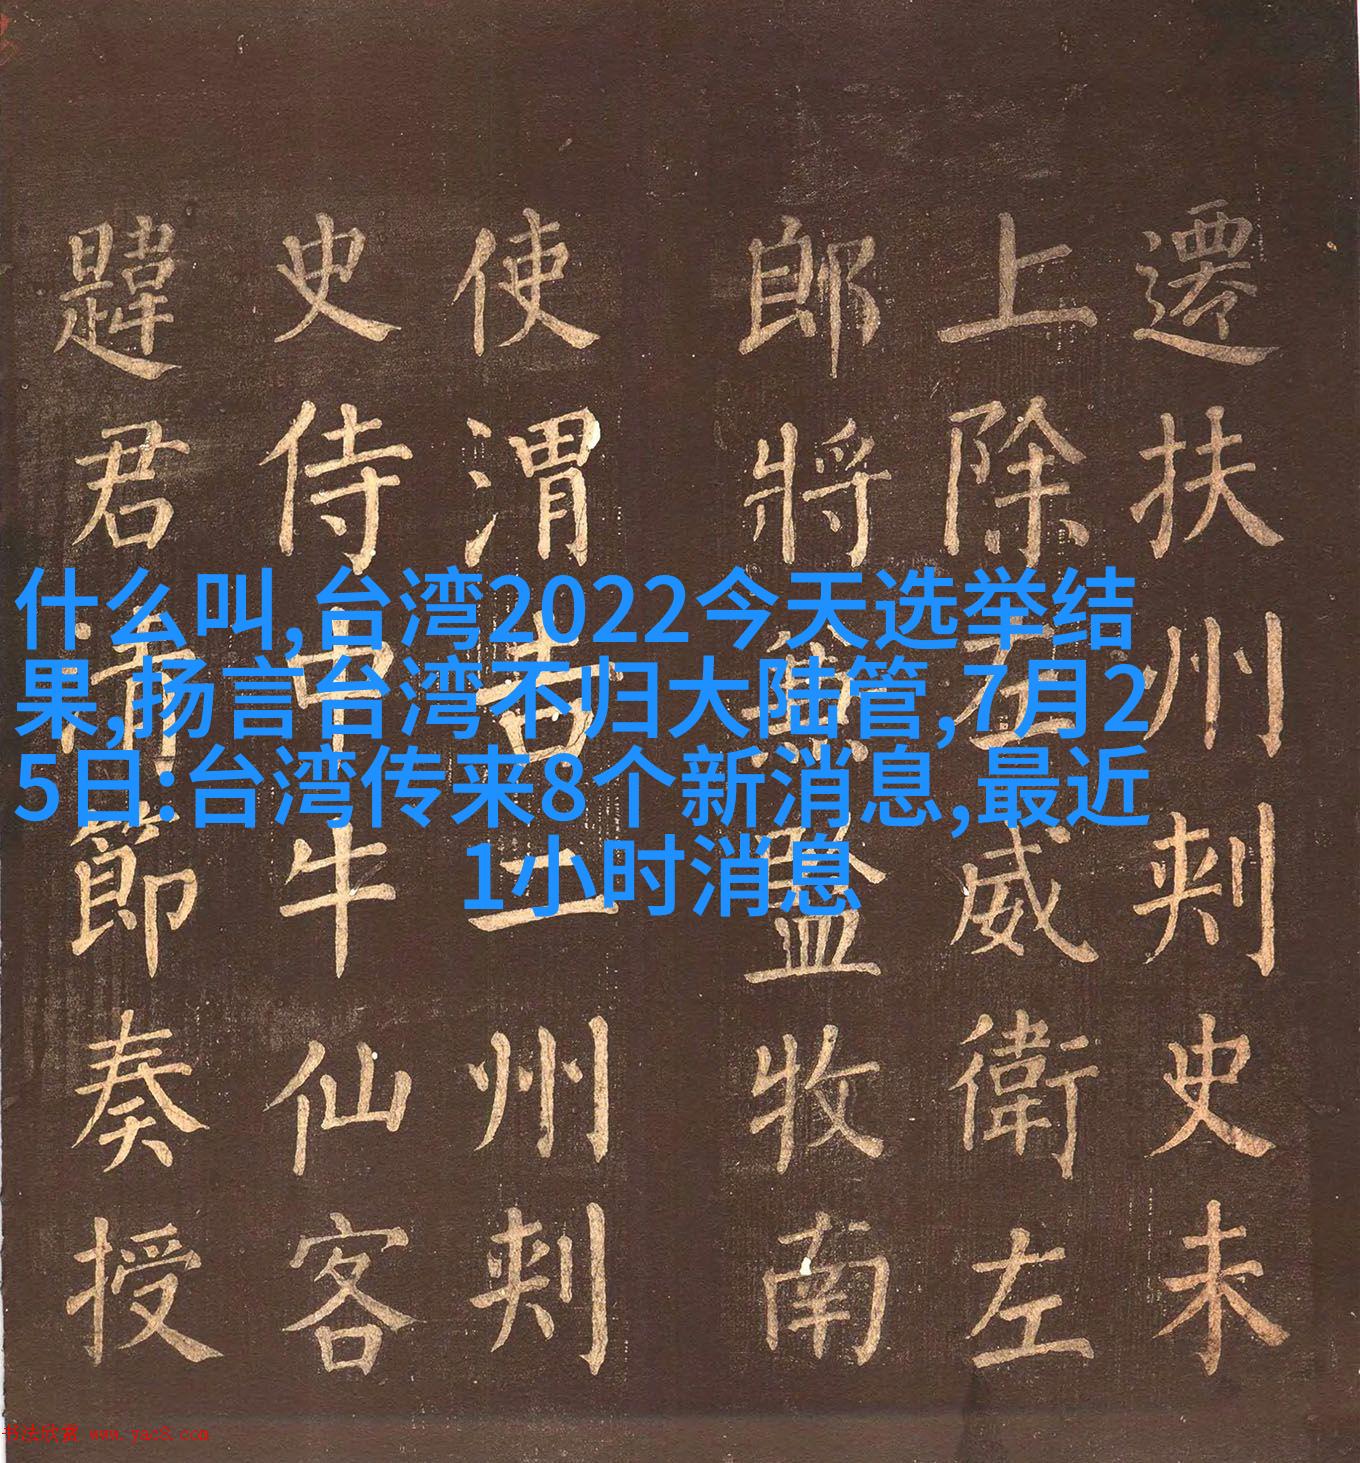 什么叫,台湾2022今天选举结
果,扬言台湾不归大陆管,7月2
5日:台湾传来8个新消息,最近
1小时消息
遷扶州刾史未
上除左威衛左
郎將兼監牧南
使渭吉二州刾
史侍中牛仙客
韙君清節奏授
书法欣赏 www.yac8.com